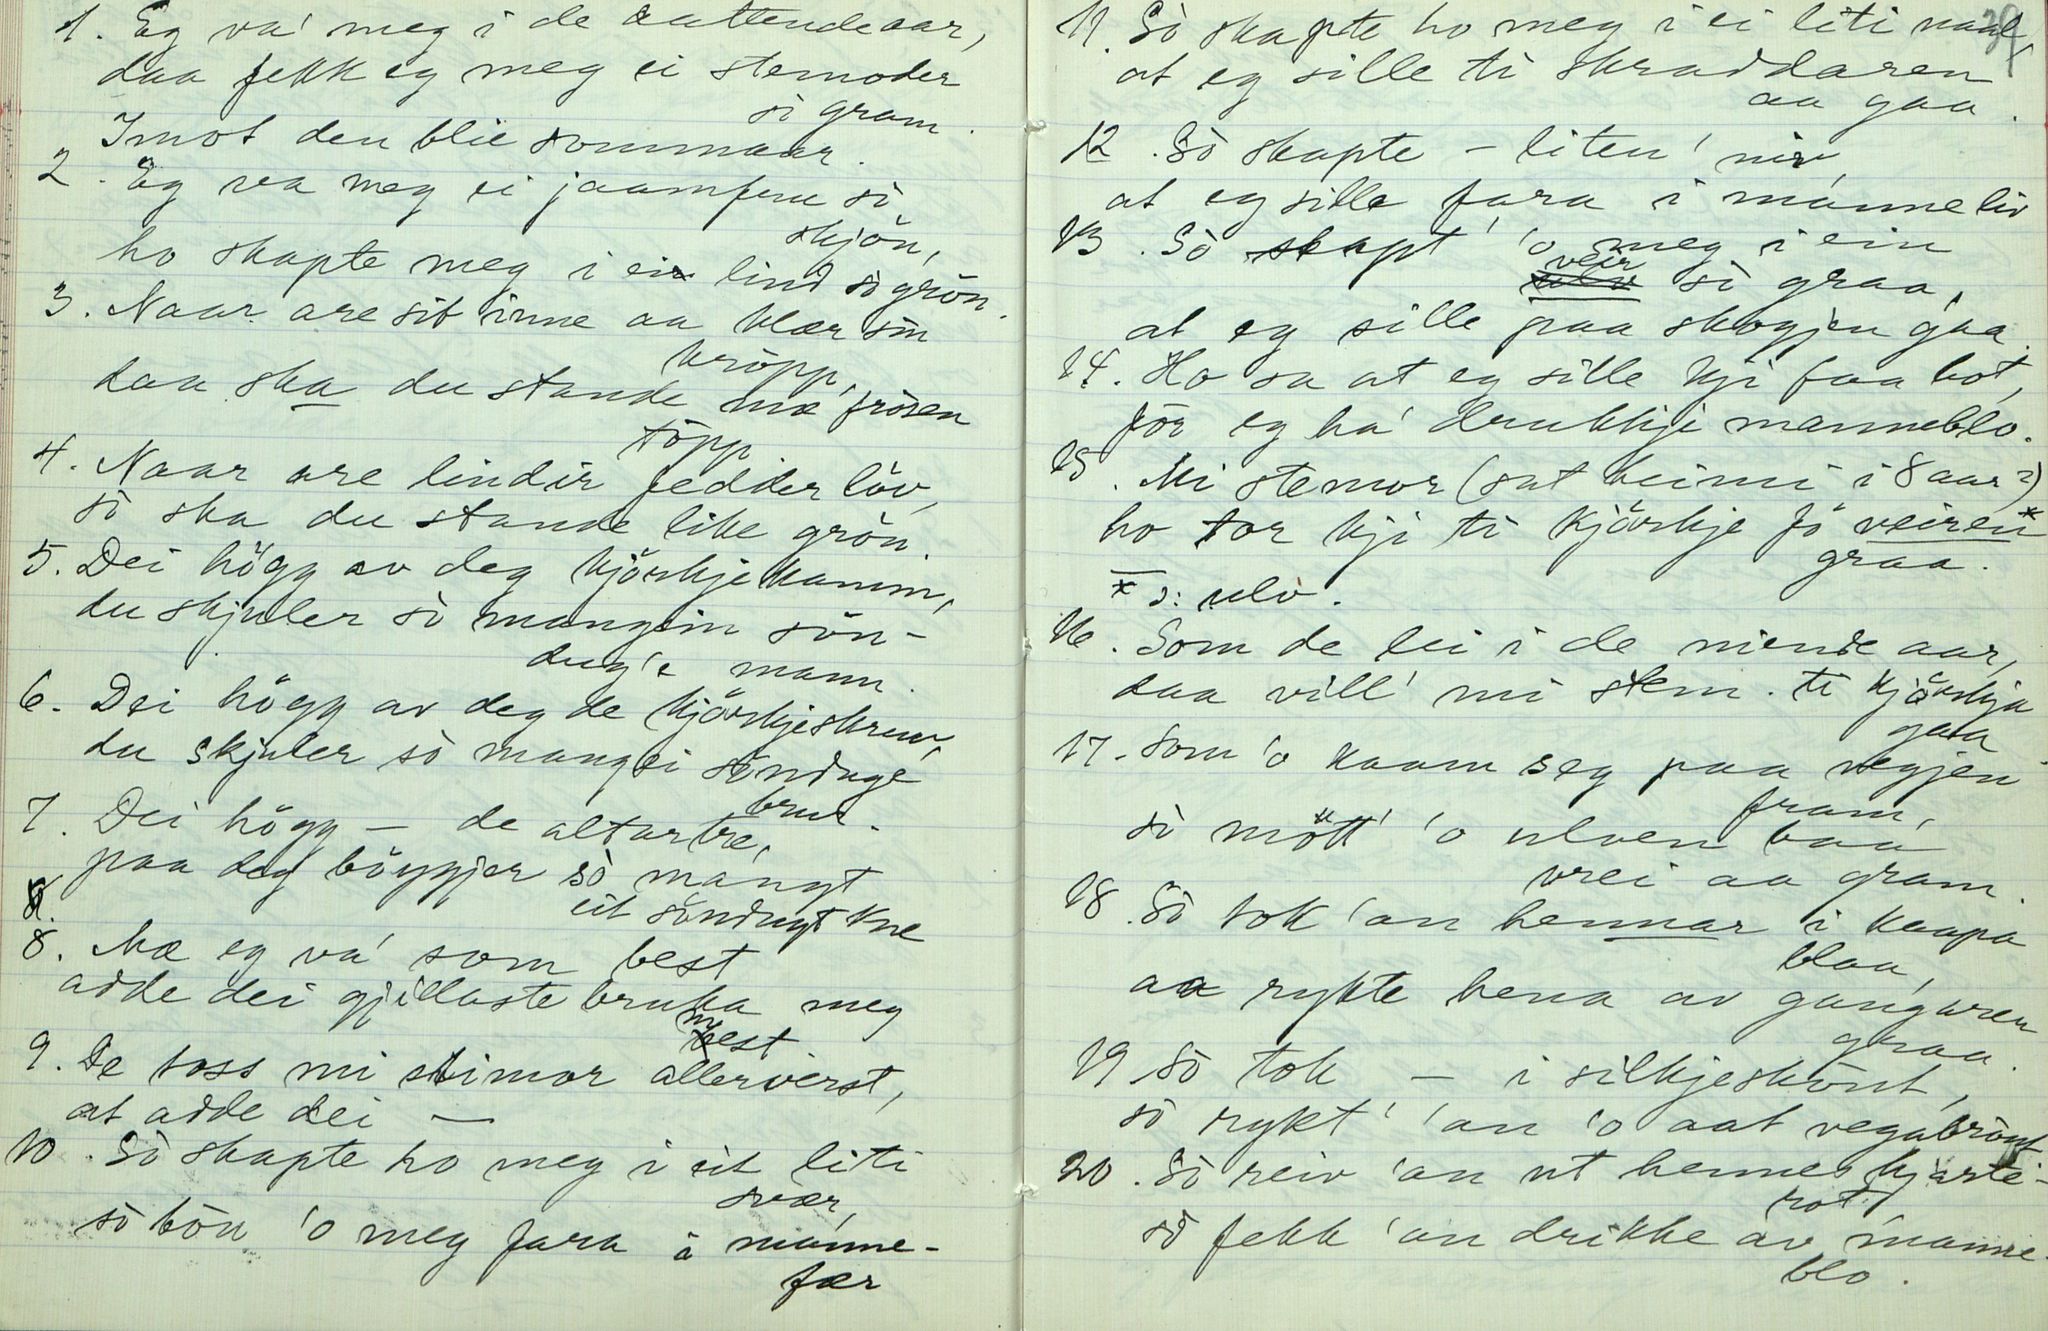 1. Eg va' meg i de aattende aar,
daa fekk eg meg ei stemoder
så gram.
Imot den blie sommaar.
2. Eg va meg ei jaamfru sò
skjön,
ho skapte meg i ei lind sò grön.
3. Naar are sit inne aa klær sin
kròpp,
daa ska du stande mæ' fròsen
tòpp
4. Naar are lindir fedder löv,
sò ska du stande like grön.
5. Dei högg av deg kjörkjekamm,
du skjuler sò mangein sön-
dug'e mann.
6. Dei högg av deg de kjörkjeskruv,
du skjuler sò mangei sönduge
brud.
7. Dei högg – de altartre,
paa deg böygjer sò mangt
eit söndugt kne
8. Mæ eg va' som best
adde dei gjillaste bruka meg
mest
9. De toss mi stimor allerverst,
at adde dei —
10. Sò skapte ho meg i eit liti
svær,
sò bön 'o meg fara i manne-
fær
39
11. Sò skapte ho meg i ei liti naal,
at eg sille ti skraddaren
aa gaa.
12. Sò skapte – liten' niv,
at eg sille fara i manneliv
13. Sò skapt' 'o meg i ein
veir sò graa,
at eg sille paa skogjen gaa.
14. Ho sa at eg sille kji faa bot,
för eg ha' drukkji manneblo.
15. Mi stemor (sat heimi i 8 aar?)
ho tor kji ti kjörkje fö veiren*
graa.
* ɔ: ulv.
16. Som de lei i de niende aar,
daa vill' mi stem. ti kjörkja
gaa
17. Som 'o kaam seg paa vegjen
fram,
sò mött' 'o ulven baa'
vrei aa gram.
18. Sò tok 'an hennar i kaapa
blaa,
aa rykte hena av gangaren
graa.
19 Sò tok — i silkjeskönt,
sò rykt' 'an 'o aat vegabrönt
20. Sò reiv 'an ut hennes hjarte-
rot
sò fekk 'an drikke av manne-
blo.